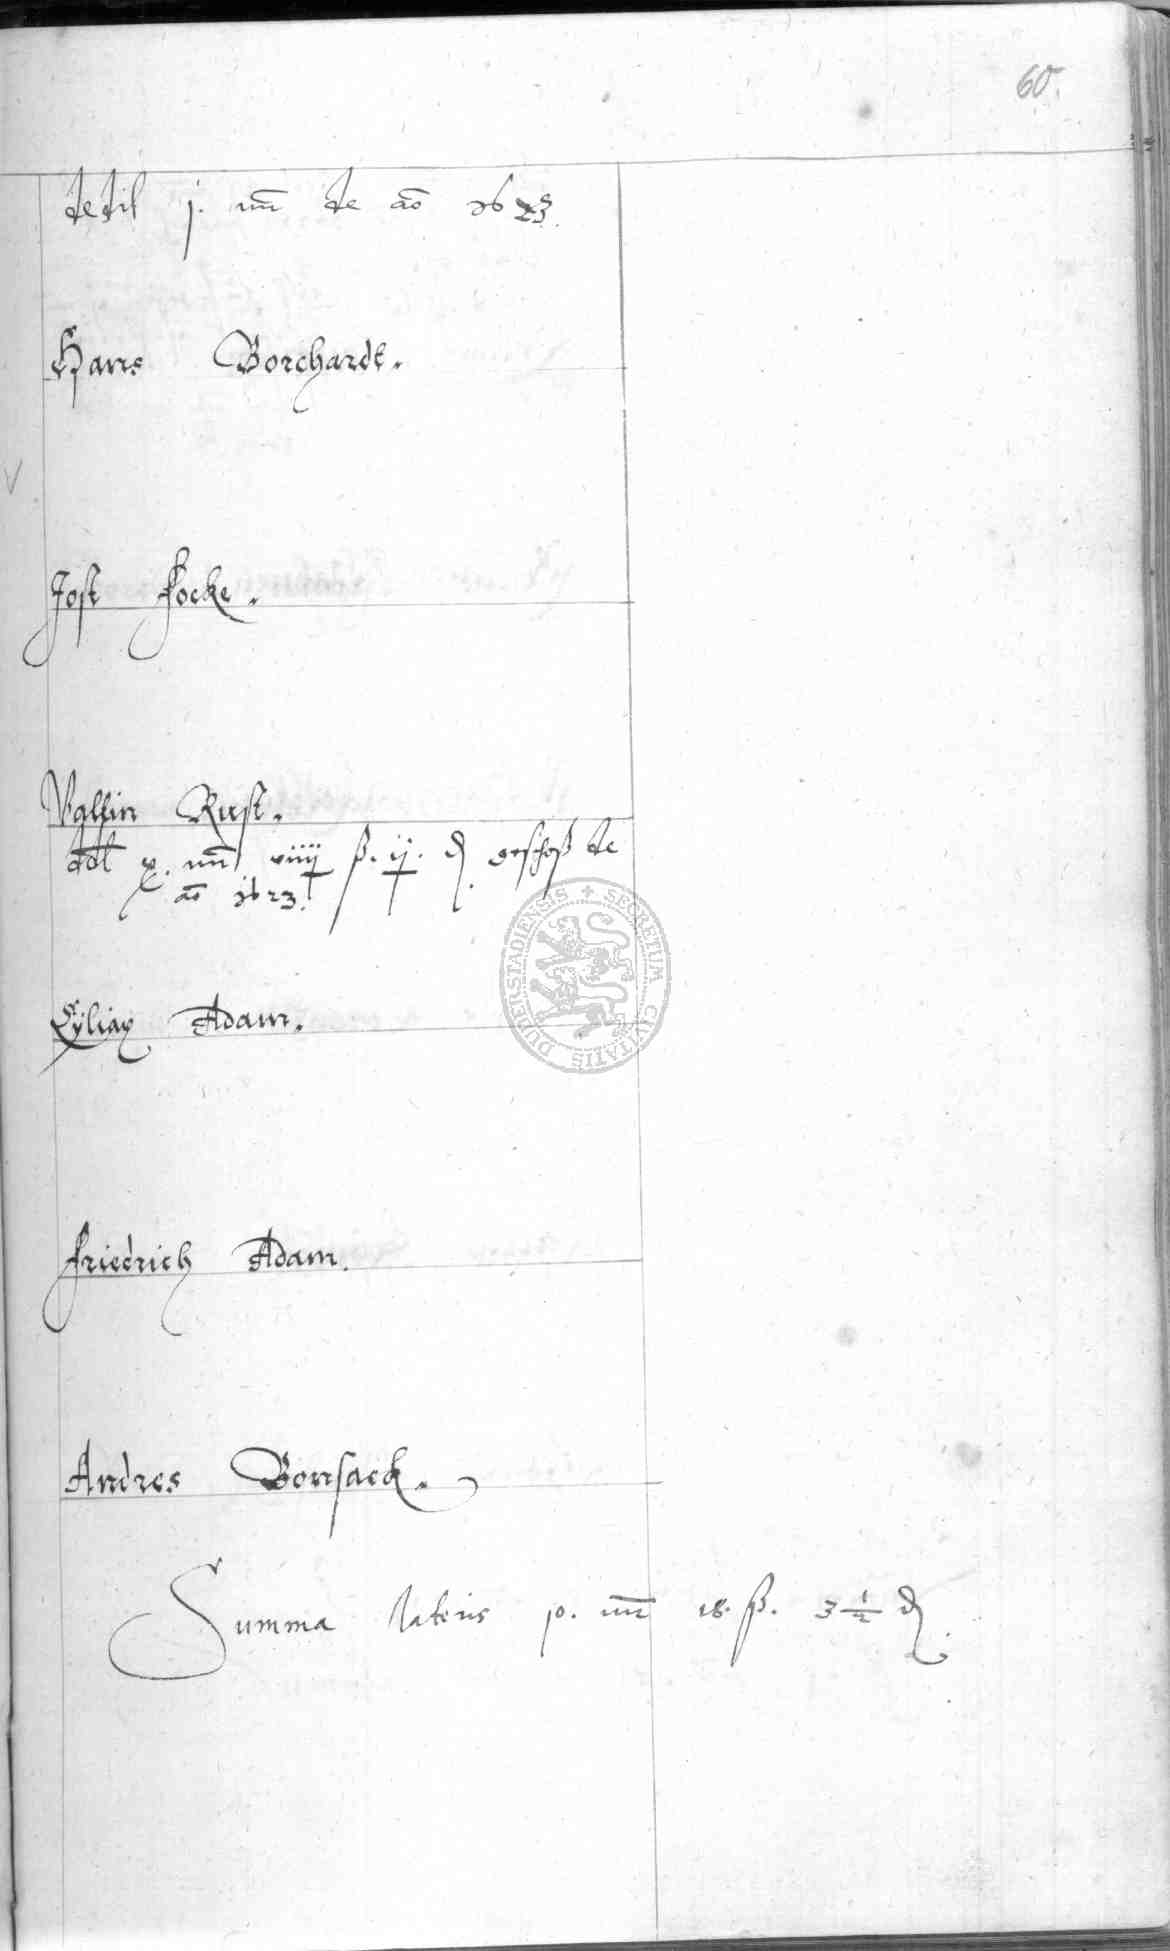 60.
dedit j. mr de ao 1623.
Hans Borchardt.
Jost Focke.
Valtin Rust.
ddt x. mr viiij ß. ij. d. geschoß de
ao 1623.
Cyliax Adam.
Friedrich Adam.
Andres Bonsack.
Summa lateris 10. mr 18. ß. 3 1/2 d.
SECRETUM CIVITATIS DUDERSTADIENSIS